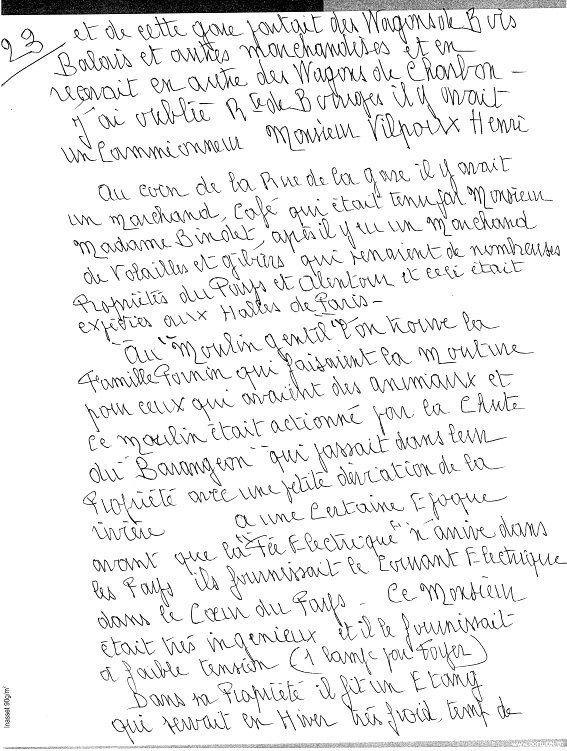 23
et de cette gare partait des Wagons de Bois
Balais et autres marchandises et en
recevait en autre des Wagons de Charbon -
J'ai oublié Rte de Bourges il y avait
un Cammionneur Monsieur Vilpoux Henri
Au coin de la Rue de la gare il y avait
un marchand, Café qui était tenu par Monsieur
Madame Binolet, après il y eu un Marchand
de Volailles et gibiers qui venaient de nombreuses
Propriétés du Pays et Alentour et ceci était
expédiés aux Halles de Paris -
"Au "Moulin gentil" l'on trouve la
Famille Pornin qui faisaient la mouture
pour ceux qui avaient des animaux et
ce moulin était actionné par la Chute
du "Barangeon" qui passait dans leur
Propriété avec une petite déviation de la
rivière a une Certaine Epoque
avant que la "Fée Electrique" n'arrive dans
les Pays ils fournissait le Courant Electrique
dans le Cœur du Pays - Ce Monsieur
était très ingenieux et il le fournissait
à faible tension (1 lampe par Foyer)
Dans sa Propriété il fit un Etang
qui servait en Hiver très froid, temps de
Inasset 90g/m²